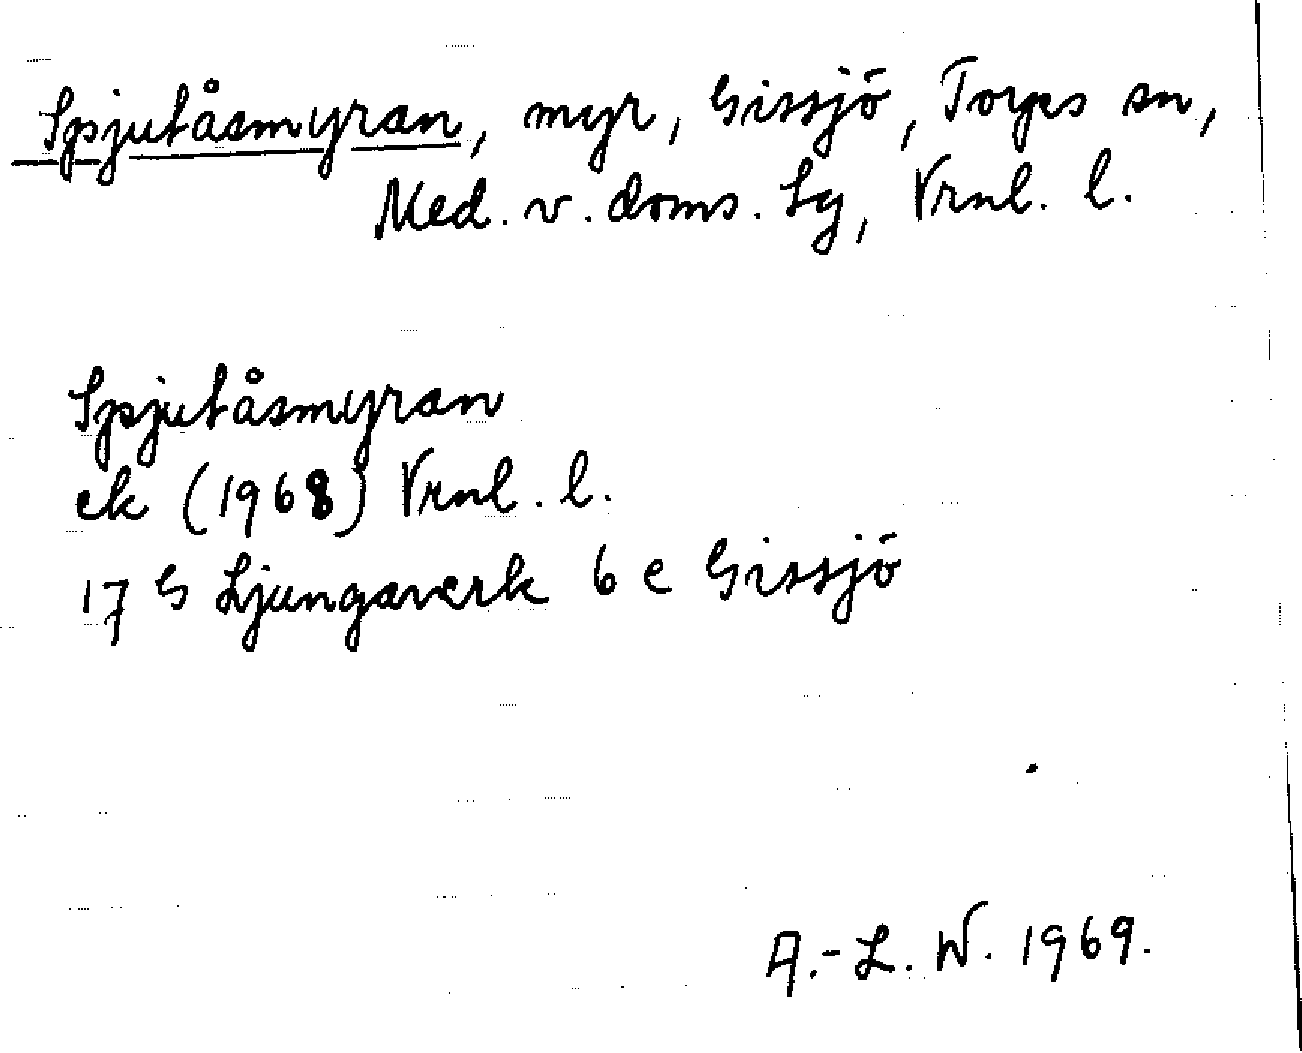 Spjutåsmyran, myr, Gissjö, Torps sn,
Med. v. doms. Lg, Vrnl. l.
Spjutåsmyran
ek (1968) Vrnl. l.
17 G Ljungaverk 6 e Gissjö
A.-L. W. 1969.